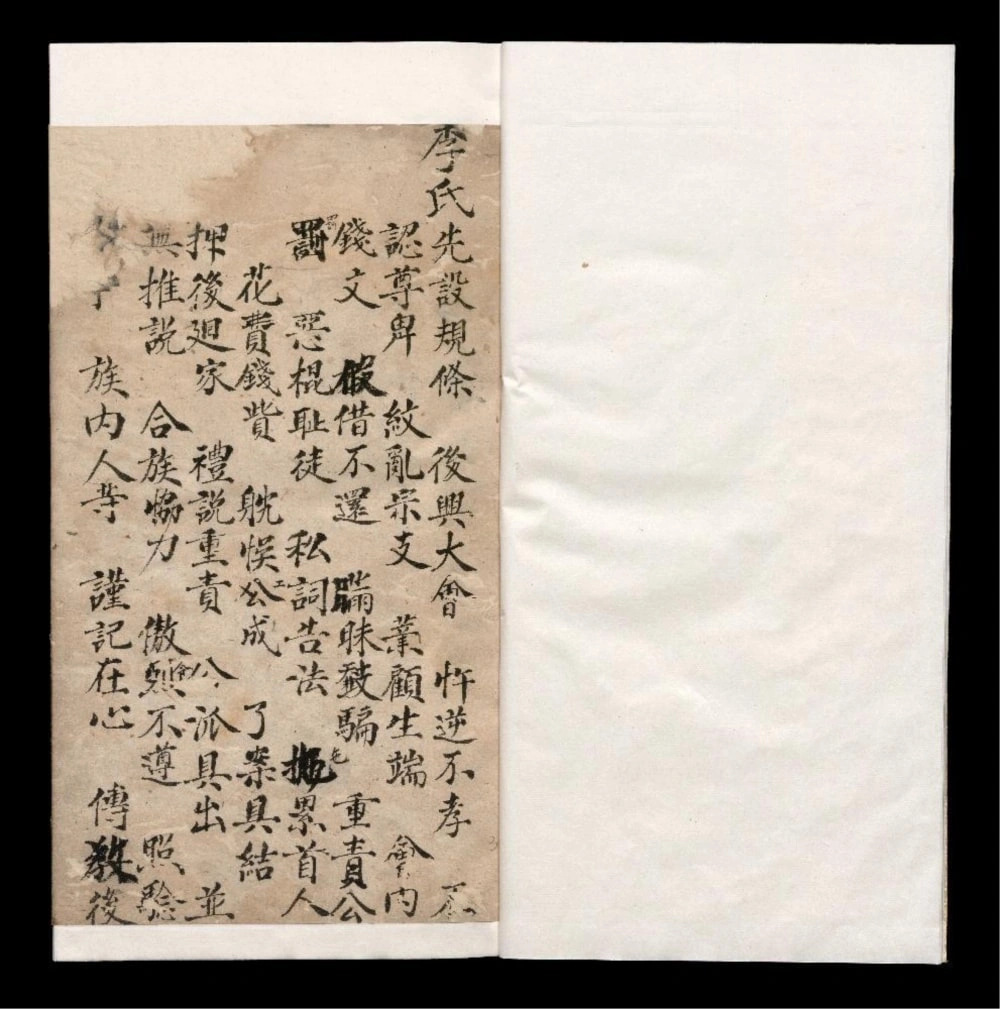 李氏先設規條 後興大會 忤逆不孝 不
認尊卑 紋亂宗支 業顧生端 會內
錢文 假借不還 瞞昧
騙 重責公
罰 惡棍耻徒 私詞告法 拖累首人
花費錢貲 躭悮公成 了案具結
押後廻家 禮說重責 公派具出 並
無推說 合族恊力 傲 不遵 照驗
族內人等 謹記在心 傅教後